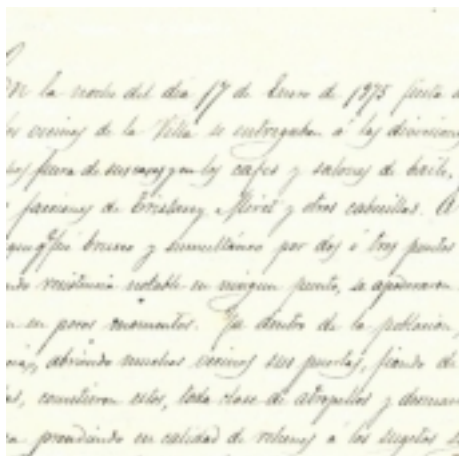 En la noche del dia 17 de Enero de 1875 fiesta d
los vecinos de la Villa se entregaban á las diversione
fuera de sus casas y en los cafes y salones de baile,
facciones de Tristany, Miret y otros cabecillas. A
brusco y simultáneo por dos ó tres puntos
resistencia notable en ningun punto, se apoderaron
en pocos momentos. Ya dentro de la poblacion,
abriendo muchos vecinos sus puertas, fiando de
cometieron estos, toda clase de atropellos y
prendiendo en calidad de rehenes á los sugetos